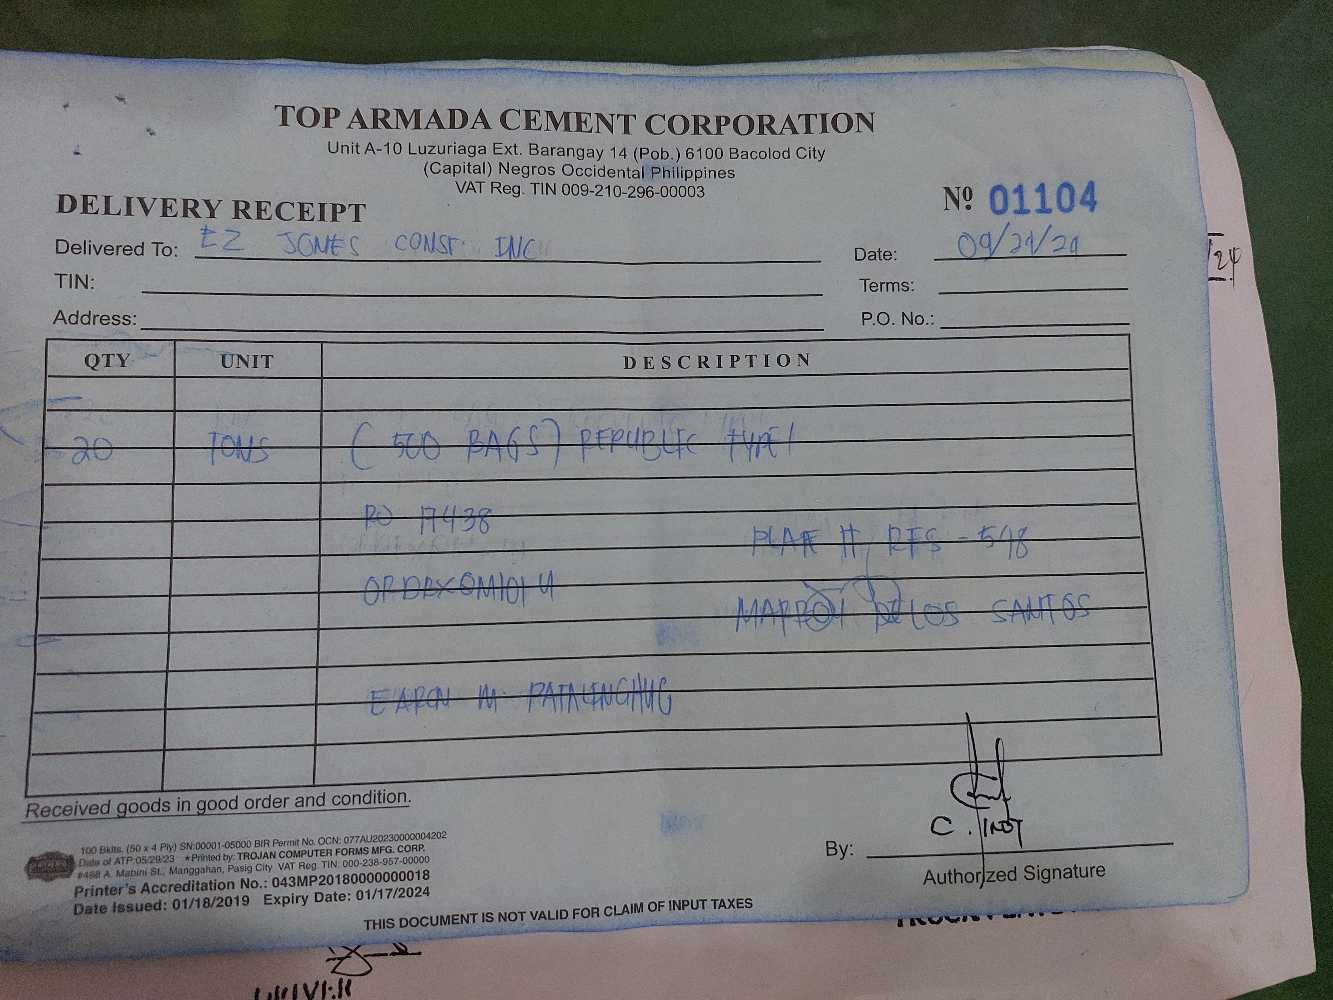 TOP ARMADA CEMENT CORPORATION
Unit A-10 Luzuriaga Ext. Barangay 14 (Pob.) 6100 Bacolod City
(Capital) Negros Occidental Philippines
VAT Reg. TIN 009-210-296-00003
DELIVERY RECEIPT
Nº 01104
Delivered To: EZ JONES CONST. INC
Date: 09/21/24
TIN:
Terms:
Address:
P.O. No.:
QTY UNIT DESCRIPTION
20 TONS (500 BAGS) REPUBLIC TYPE 1
PO 17438
PLATE # RFS - 548
DELOS SANTOS
M. PATALINGHUG
C. TINGT
Received goods in good order and condition.
By:
Authorized Signature
100 Bklts. (50 x 4 Ply) SN:00001-05000 BIR Permit No. OCN: 077AU20230000004202
Date of ATP:05/29/23 *Printed by: TROJAN COMPUTER FORMS MFG. CORP.
#488 A. Mabini St., Manggahan, Pasig City VAT Reg. TIN: 000-238-957-00000
Printer's Accreditation No.: 043MP20180000000018
Date Issued: 01/18/2019 Expiry Date: 01/17/2024
THIS DOCUMENT IS NOT VALID FOR CLAIM OF INPUT TAXES